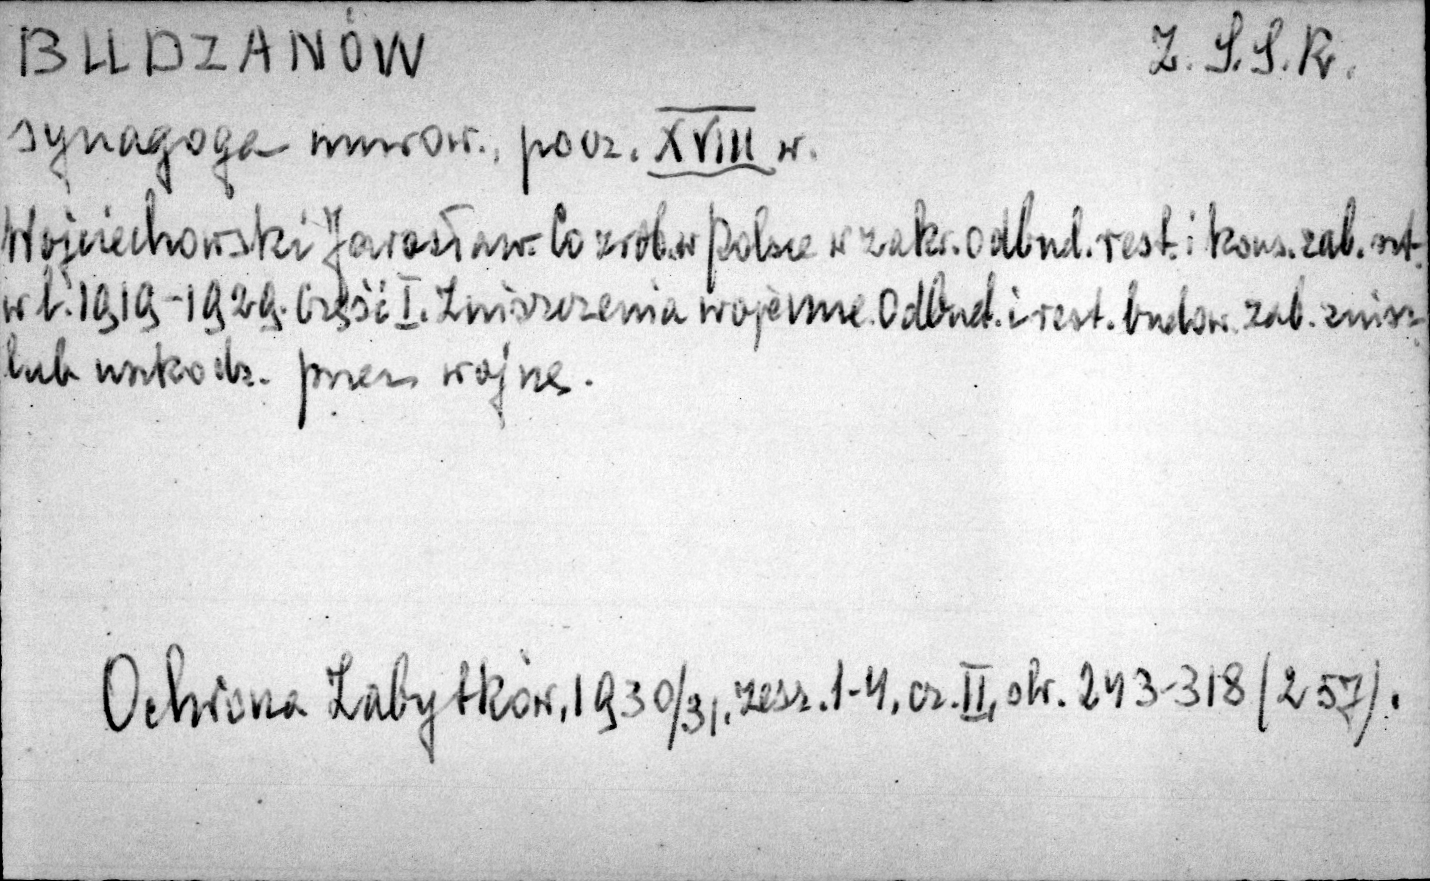 BUDZANÓW Z.S.S.R.
synagoga murow., pocz. XVIII w.
Wojciechowski Jarosław. Co zrob. w Polsce w zakr. odbud. rest. i kons. zab. szt.
w l. 1919-1929. Część I. Zniszczenia wojenne. Odbud. i rest. budow. zab. znisz.
lub uszkodz. przez wojnę.
Ochrona Zabytków, 1930/31, zesz. 1-4, cz. II, str. 243-318 (257).